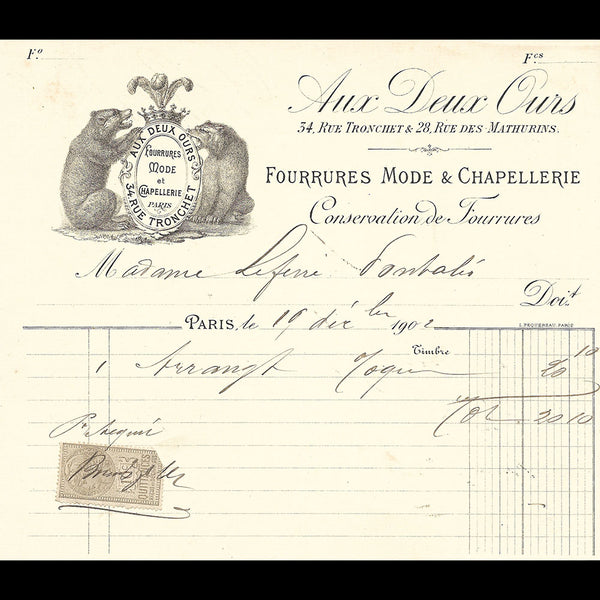 Fo
Fcs
AUX DEUX OURS
FOURRURES
MODE
et
CHAPELLERIE
PARIS
34 RUE TRONCHET
Aux Deux Ours
34, RUE TRONCHET & 28, RUE DES MATHURINS.
FOURRURES MODE & CHAPELLERIE
Conservation de Fourrures
Madame Lefevre Pontalis
Doit
PARIS, le 19 déc bre 1902
Timbre 10
1 Arrangt Toque 20
Tot. 20 10
Pr Acquit
QUITTANCES